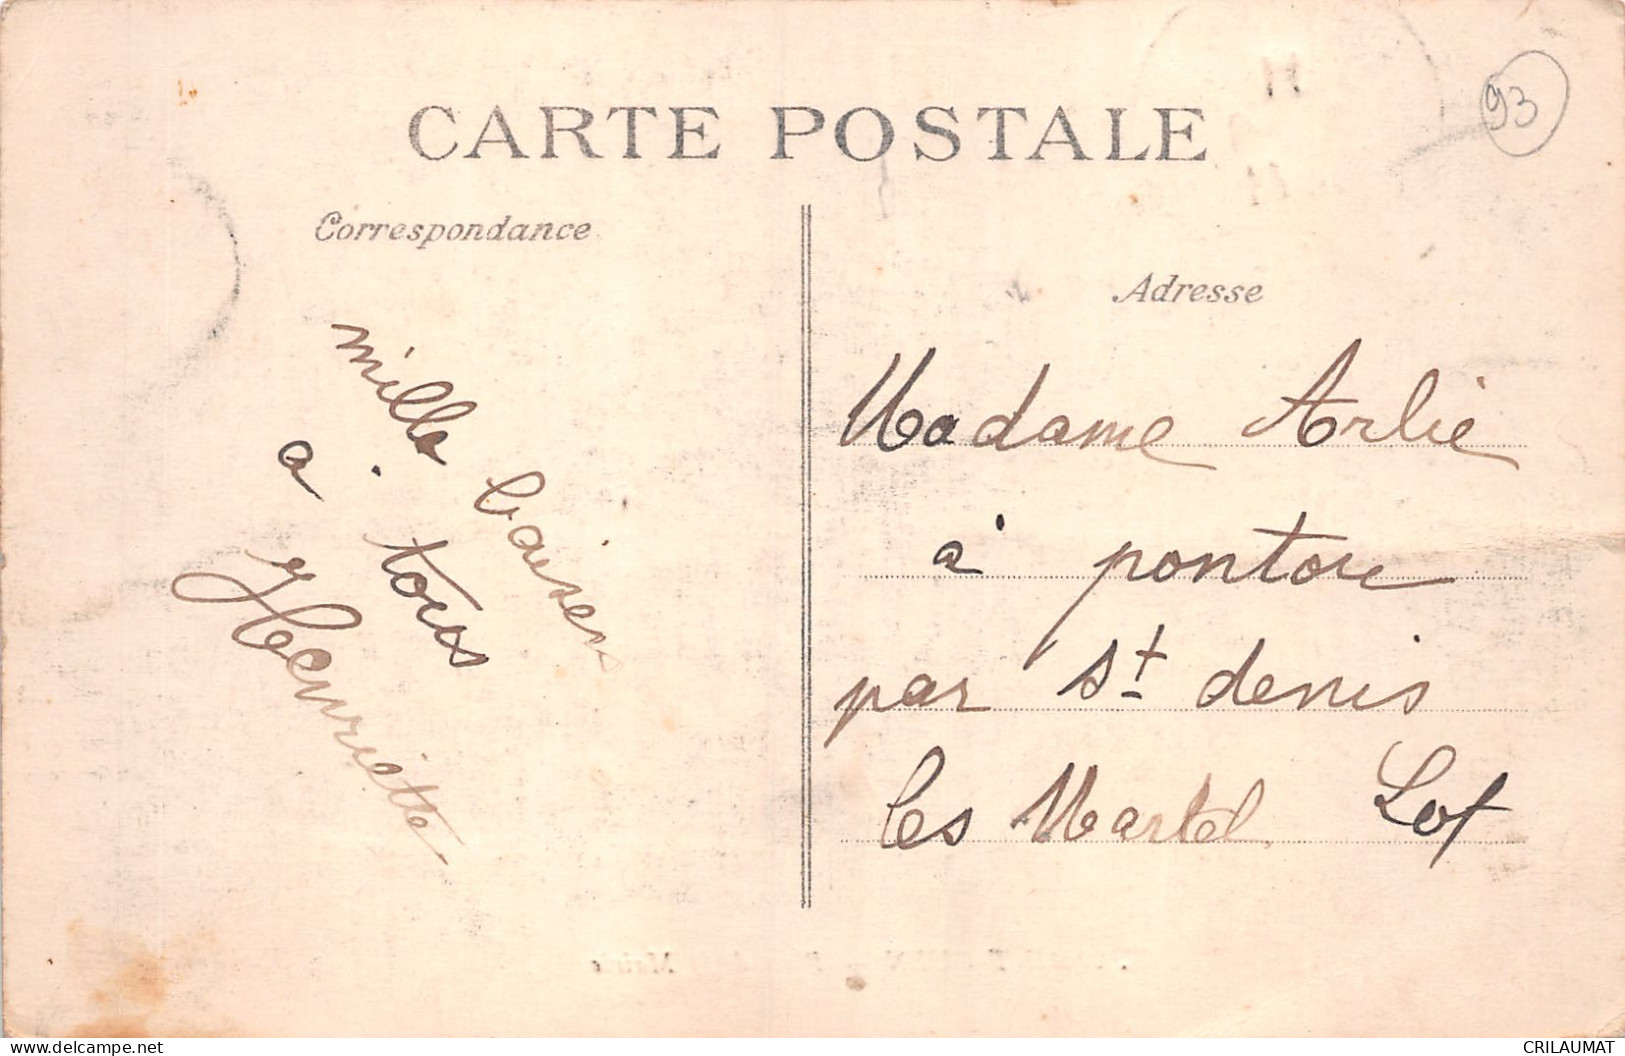 93
CARTE POSTALE
Correspondance
mille baisers
a tous
Henriette
Adresse
Madame Arlie
à pontou
par St denis
les Martel Lot
www.delcampe.net
CRILAUMAT